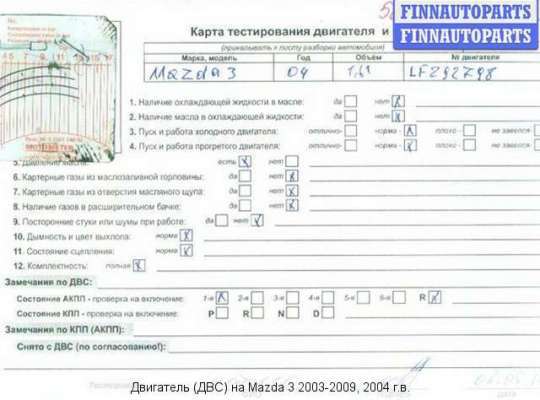 FINNAUTOPARTS
FINNAUTOPARTS
Карта тестирования двигателя и
(прикалывать к листу разборки автомобиля)
Марка, модель Год Объём № двигателя
Mazda 3 04 1,6i LF292798
1. Наличие охлаждающей жидкости в масле: да нет
2. Наличие масла в охлаждающей жидкости: да нет
3. Пуск и работа холодного двигателя: отлично- норма - плохо - не завелся
4. Пуск и работа прогретого двигателя: отлично- норма - плохо - не завелся
5. Давление масла: есть нет
6. Картерные газы из маслозаливной горловины: да нет
7. Картерные газы из отверстия масляного щупа: да нет
8. Наличие газов в расширительном бачке: да нет
9. Посторонние стуки или шумы при работе: да нет
10. Дымность и цвет выхлопа: норма
11. Состояние сцепления: норма
12. Комплектность: полная
Замечания по ДВС:
Состояние АКПП - проверка на включение: 1-я 2-я 3-я 4-я 5-я 6-я R
Состояние КПП - проверка на включение: P R N D
Замечания по КПП (АКПП):
Снято с ДВС (по согласованию!):
Двигатель (ДВС) на Mazda 3 2003-2009, 2004 г.в.